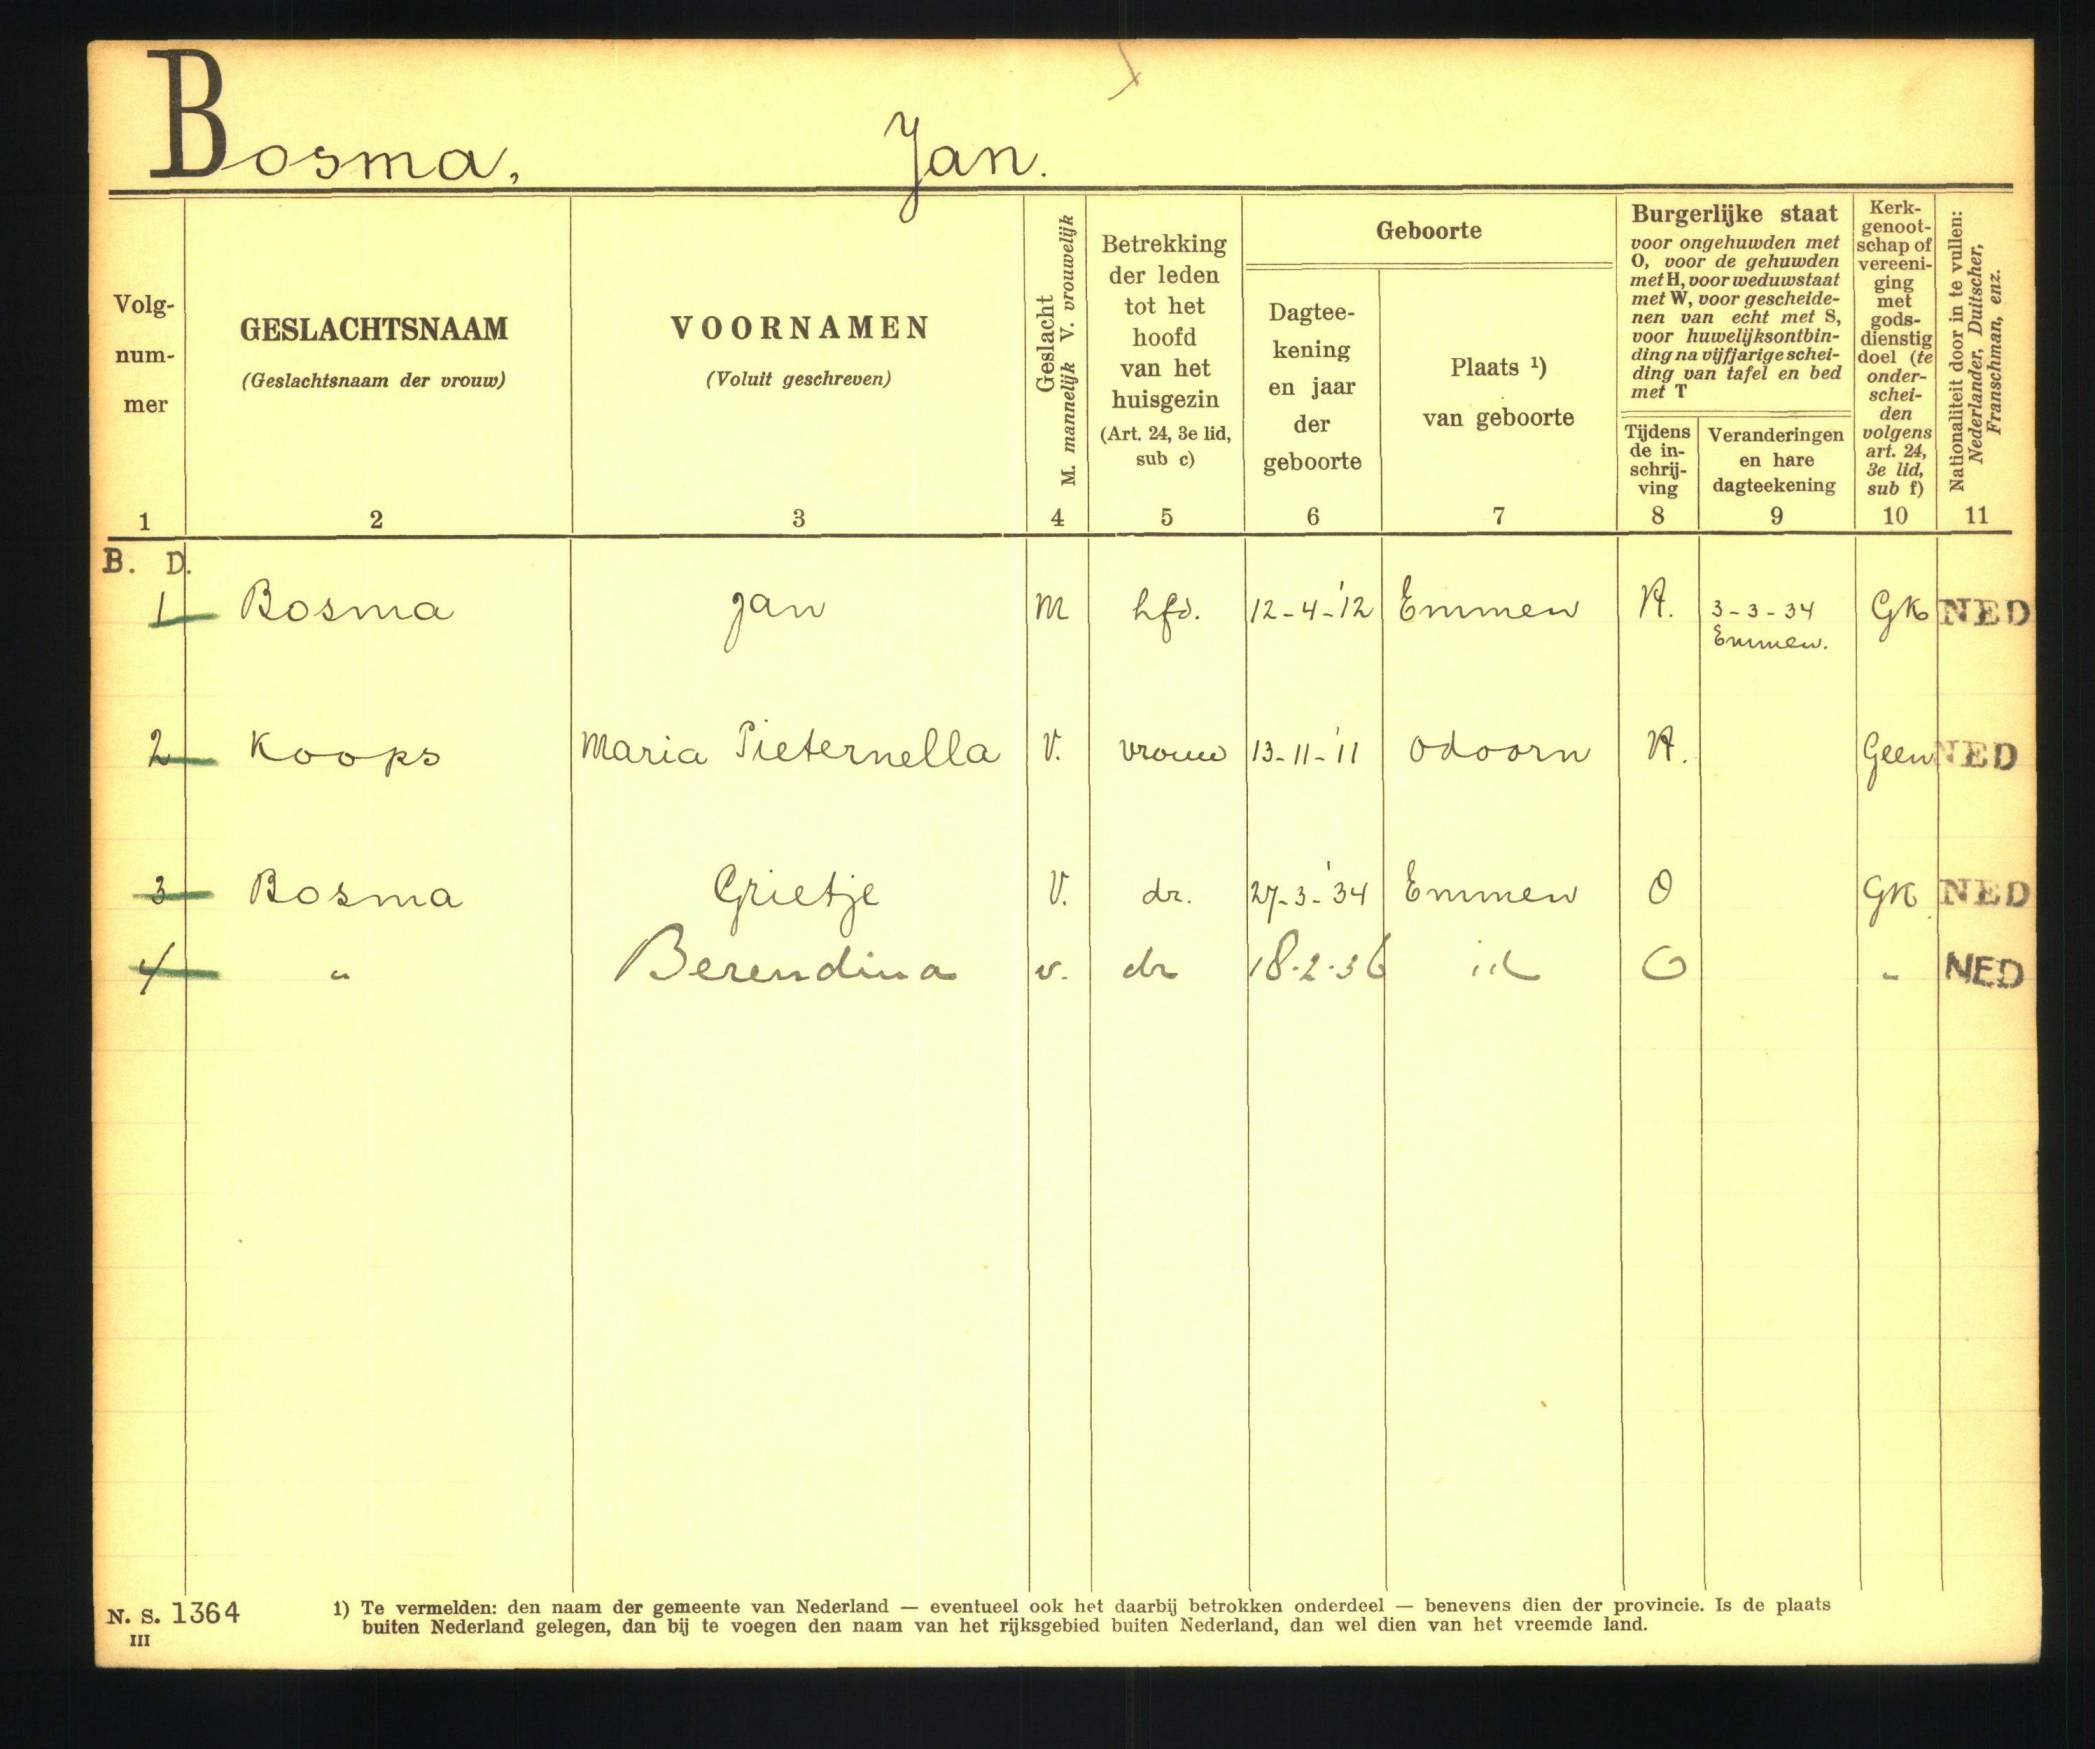 Bosma, Jan.
Volg-
num-
mer
1
GESLACHTSNAAM
(Geslachtsnaam der vrouw)
2
VOORNAMEN
(Voluit geschreven)
3
Geslacht
M. mannelijk V. vrouwelijk
4
Betrekking
der leden
tot het
hoofd
van het
huisgezin
(Art. 24, 3e lid,
sub c)
5
Geboorte
Dagtee-
kening
en jaar
der
geboorte
6
Plaats ¹)
van geboorte
7
Burgerlijke staat
voor ongehuwden met
O, voor de gehuwden
met H, voor weduwstaat
met W, voor gescheide-
nen van echt met S,
voor huwelijksontbin-
ding na vijfjarige schei-
ding van tafel en bed
met T
Tijdens
de in-
schrij-
ving
8
Veranderingen
en hare
dagteekening
9
Kerk-
genoot-
schap of
vereeni-
ging
met
gods-
dienstig
doel (te
onder-
schei-
den
volgens
art. 24,
3e lid,
sub f)
10
Nationaliteit door in te vullen:
Nederlander, Duitscher,
Franschman, enz.
11
B. D.
1 Bosma Jan M hfd. 12-4-'12 Emmen H. 3-3-34 GK NED
Emmen.
2 Koops Maria Pieternella V. vrouw 13-11-'11 Odoorn H. Geen NED
3 Bosma Grietje V. dr. 27-3-'34 Emmen O GK NED
4 " Berendina v. dr 18-2-36 id O " NED
N. S. 1364
III
1) Te vermelden: den naam der gemeente van Nederland — eventueel ook het daarbij betrokken onderdeel — benevens dien der provincie. Is de plaats
buiten Nederland gelegen, dan bij te voegen den naam van het rijksgebied buiten Nederland, dan wel dien van het vreemde land.